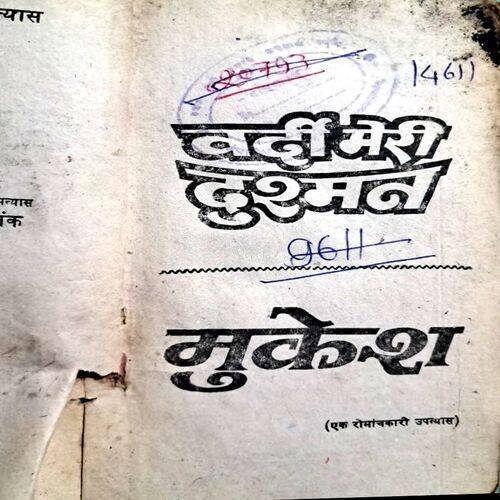 न्यास
न्यास
20793
14611
वर्दी मेरी
दुश्मन
9611
मुकेश
(एक रोमांचकारी उपन्यास)